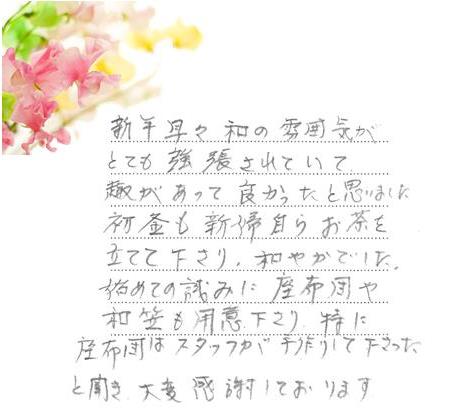 新年早々和の雰囲気が
とても強張されていて
趣があって良かったと思いました
初釜も新婦自らお茶を
立てて下さり、和やかでした。
始めての試みに座布団や
和笠も用意下さり、特に
座布団はスタッフが手作りして下さった
と聞き、大変感謝しております